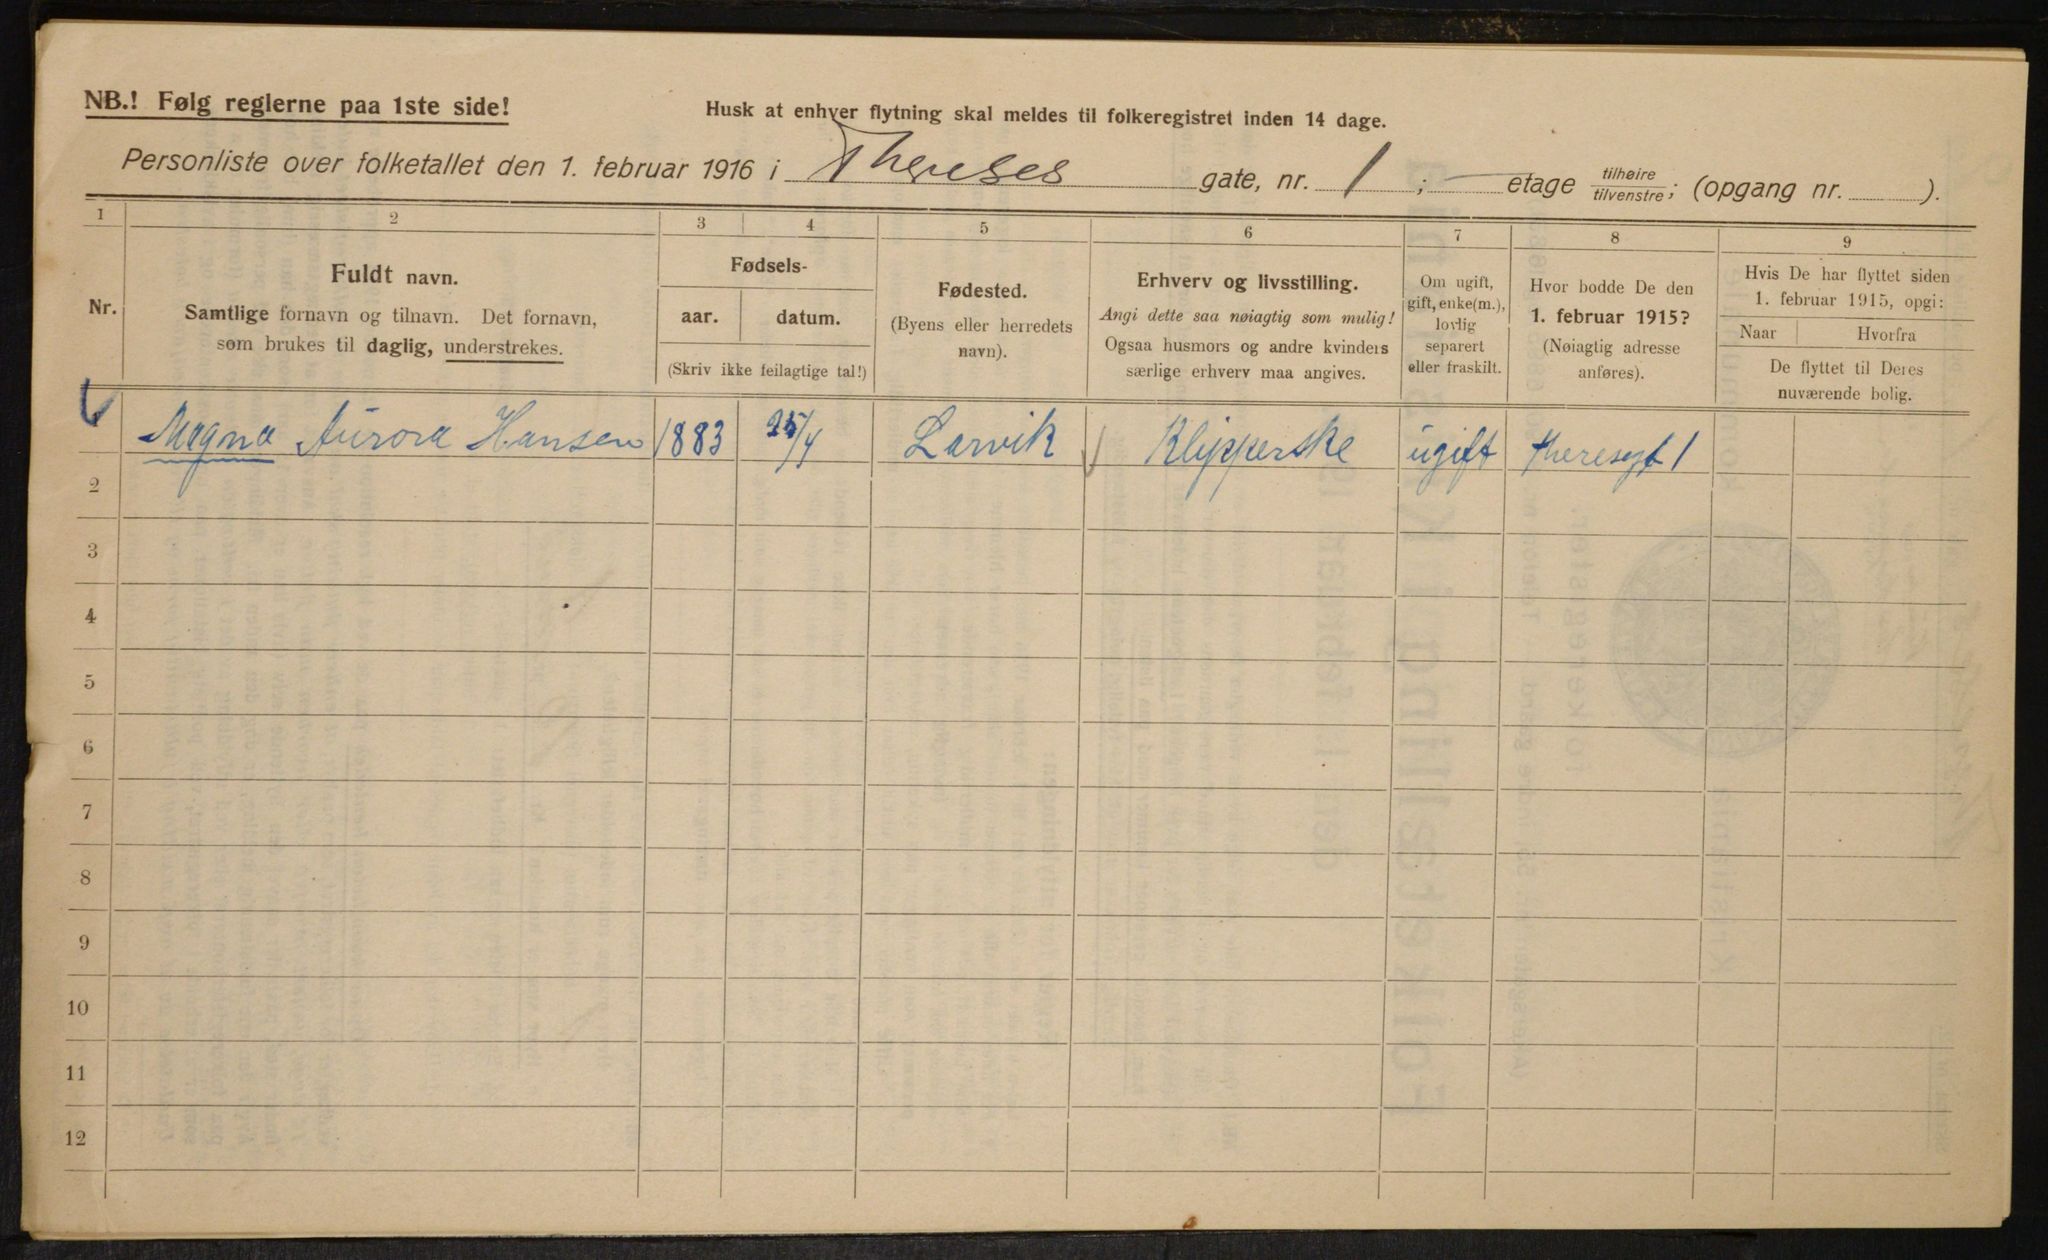 NB.! Følg reglerne paa 1ste side!
Husk at enhver flytning skal meldes til folkeregistret inden 14 dage.
Personliste over folketallet den 1. februar 1916 i Thereses gate, nr. 1 ; — etage tilhøire tilvenstre; (opgang nr. ).
1 2 3 4 5 6 7 8 9
Nr.
Fuldt navn.
Samtlige fornavn og tilnavn. Det fornavn,
som brukes til daglig, understrekes.
Fødsels-
aar. datum.
(Skriv ikke feilagtige tal!)
Fødested.
(Byens eller herredets
navn).
Erhverv og livsstilling.
Angi dette saa nøiagtig som mulig!
Ogsaa husmors og andre kvinders
særlige erhverv maa angives.
Om ugift,
gift, enke(m.),
lovlig
separert
eller fraskilt.
Hvor bodde De den
1. februar 1915?
(Nøiagtig adresse
anføres).
Hvis De har flyttet siden
1. februar 1915, opgi:
Naar Hvorfra
De flyttet til Deres
nuværende bolig.
Magna Aurora Hansen 1883 25/4 Larvik Klipperske ugift theresegt 1
2
3
4
5
6
7
8
9
10
11
12